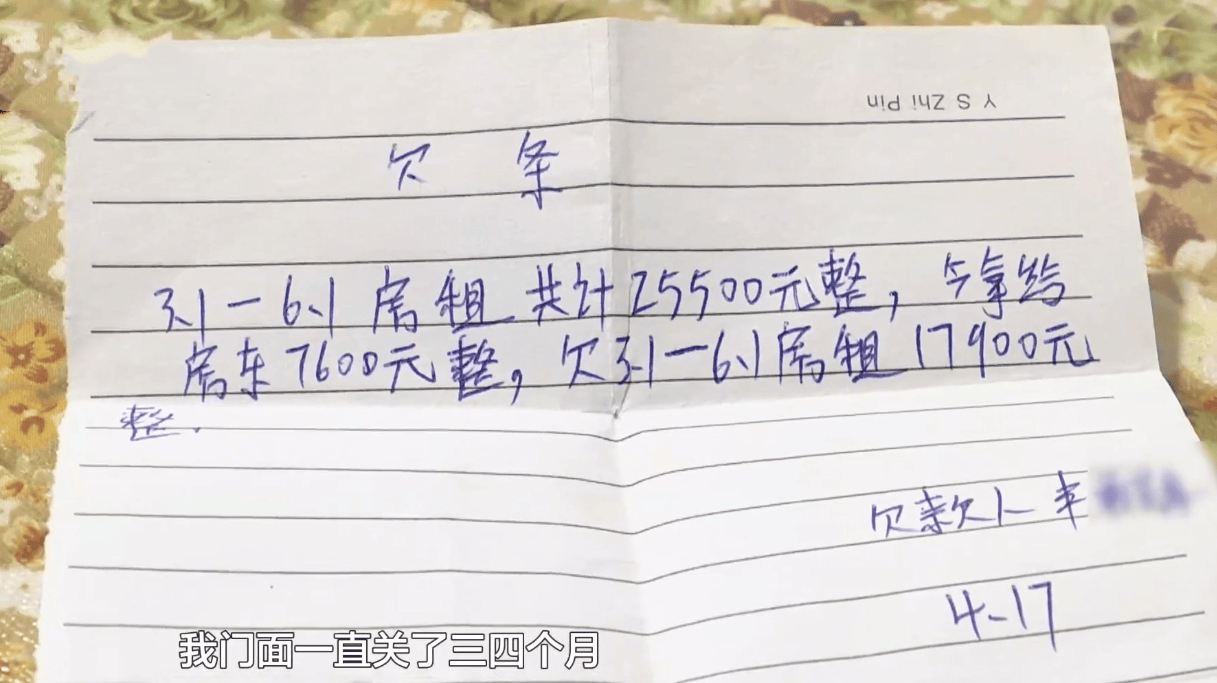 Y S Zhi Pin
欠 条
3.1一6.1房租共计25500元整，今拿给
房东7600元整，欠3.1一6.1房租17900元
整.
欠款人 丰
4-17
我门面一直关了三四个月